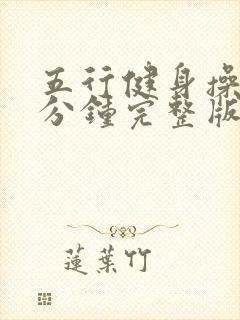 五行健身操
分鐘完整版
蓮葉竹